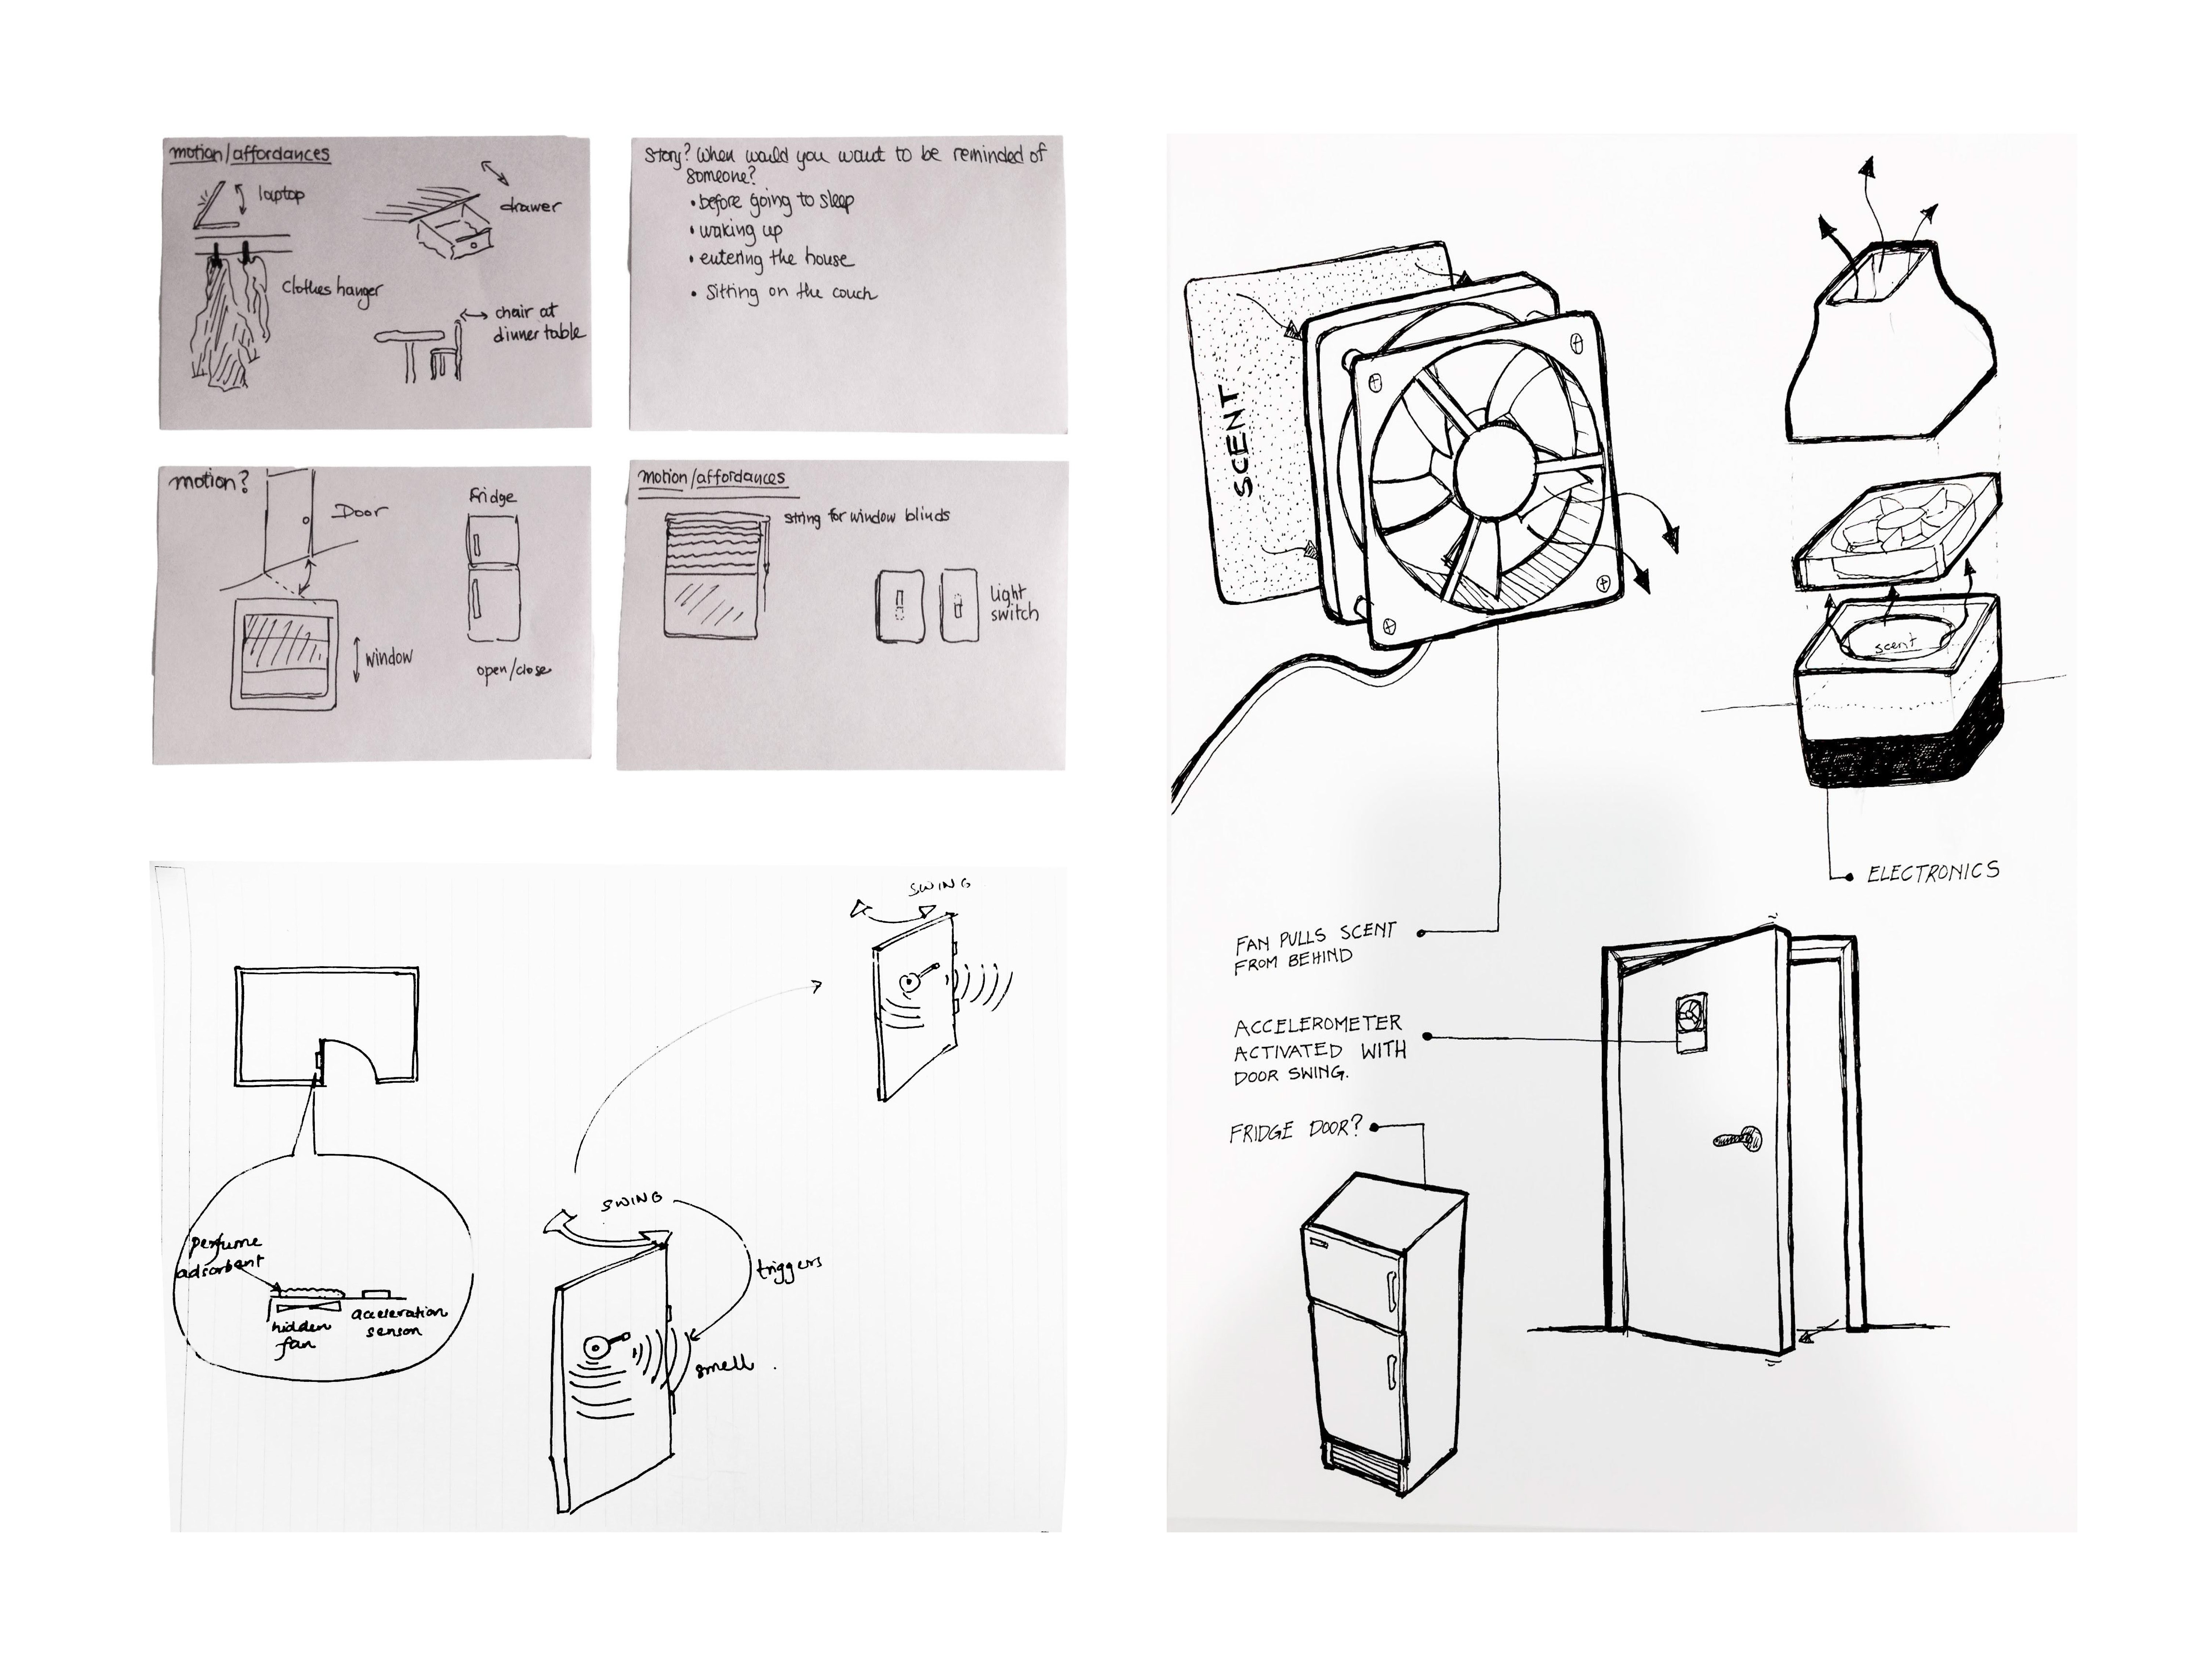 motion/affordances
laptop
drawer
clothes hanger
chair at
dinner table
story? When would you want to be reminded of
someone?
• before going to sleep
• waking up
• entering the house
• Sitting on the couch
motion?
Door
Fridge
window
open/close
motion/affordances
string for window blinds
light
switch
SWING
perfume
adsorbent
hidden
fan
acceleration
sensor
SWING
triggers
smell
SCENT
scent
ELECTRONICS
FAN PULLS SCENT
FROM BEHIND
ACCELEROMETER
ACTIVATED WITH
DOOR SWING.
FRIDGE DOOR?